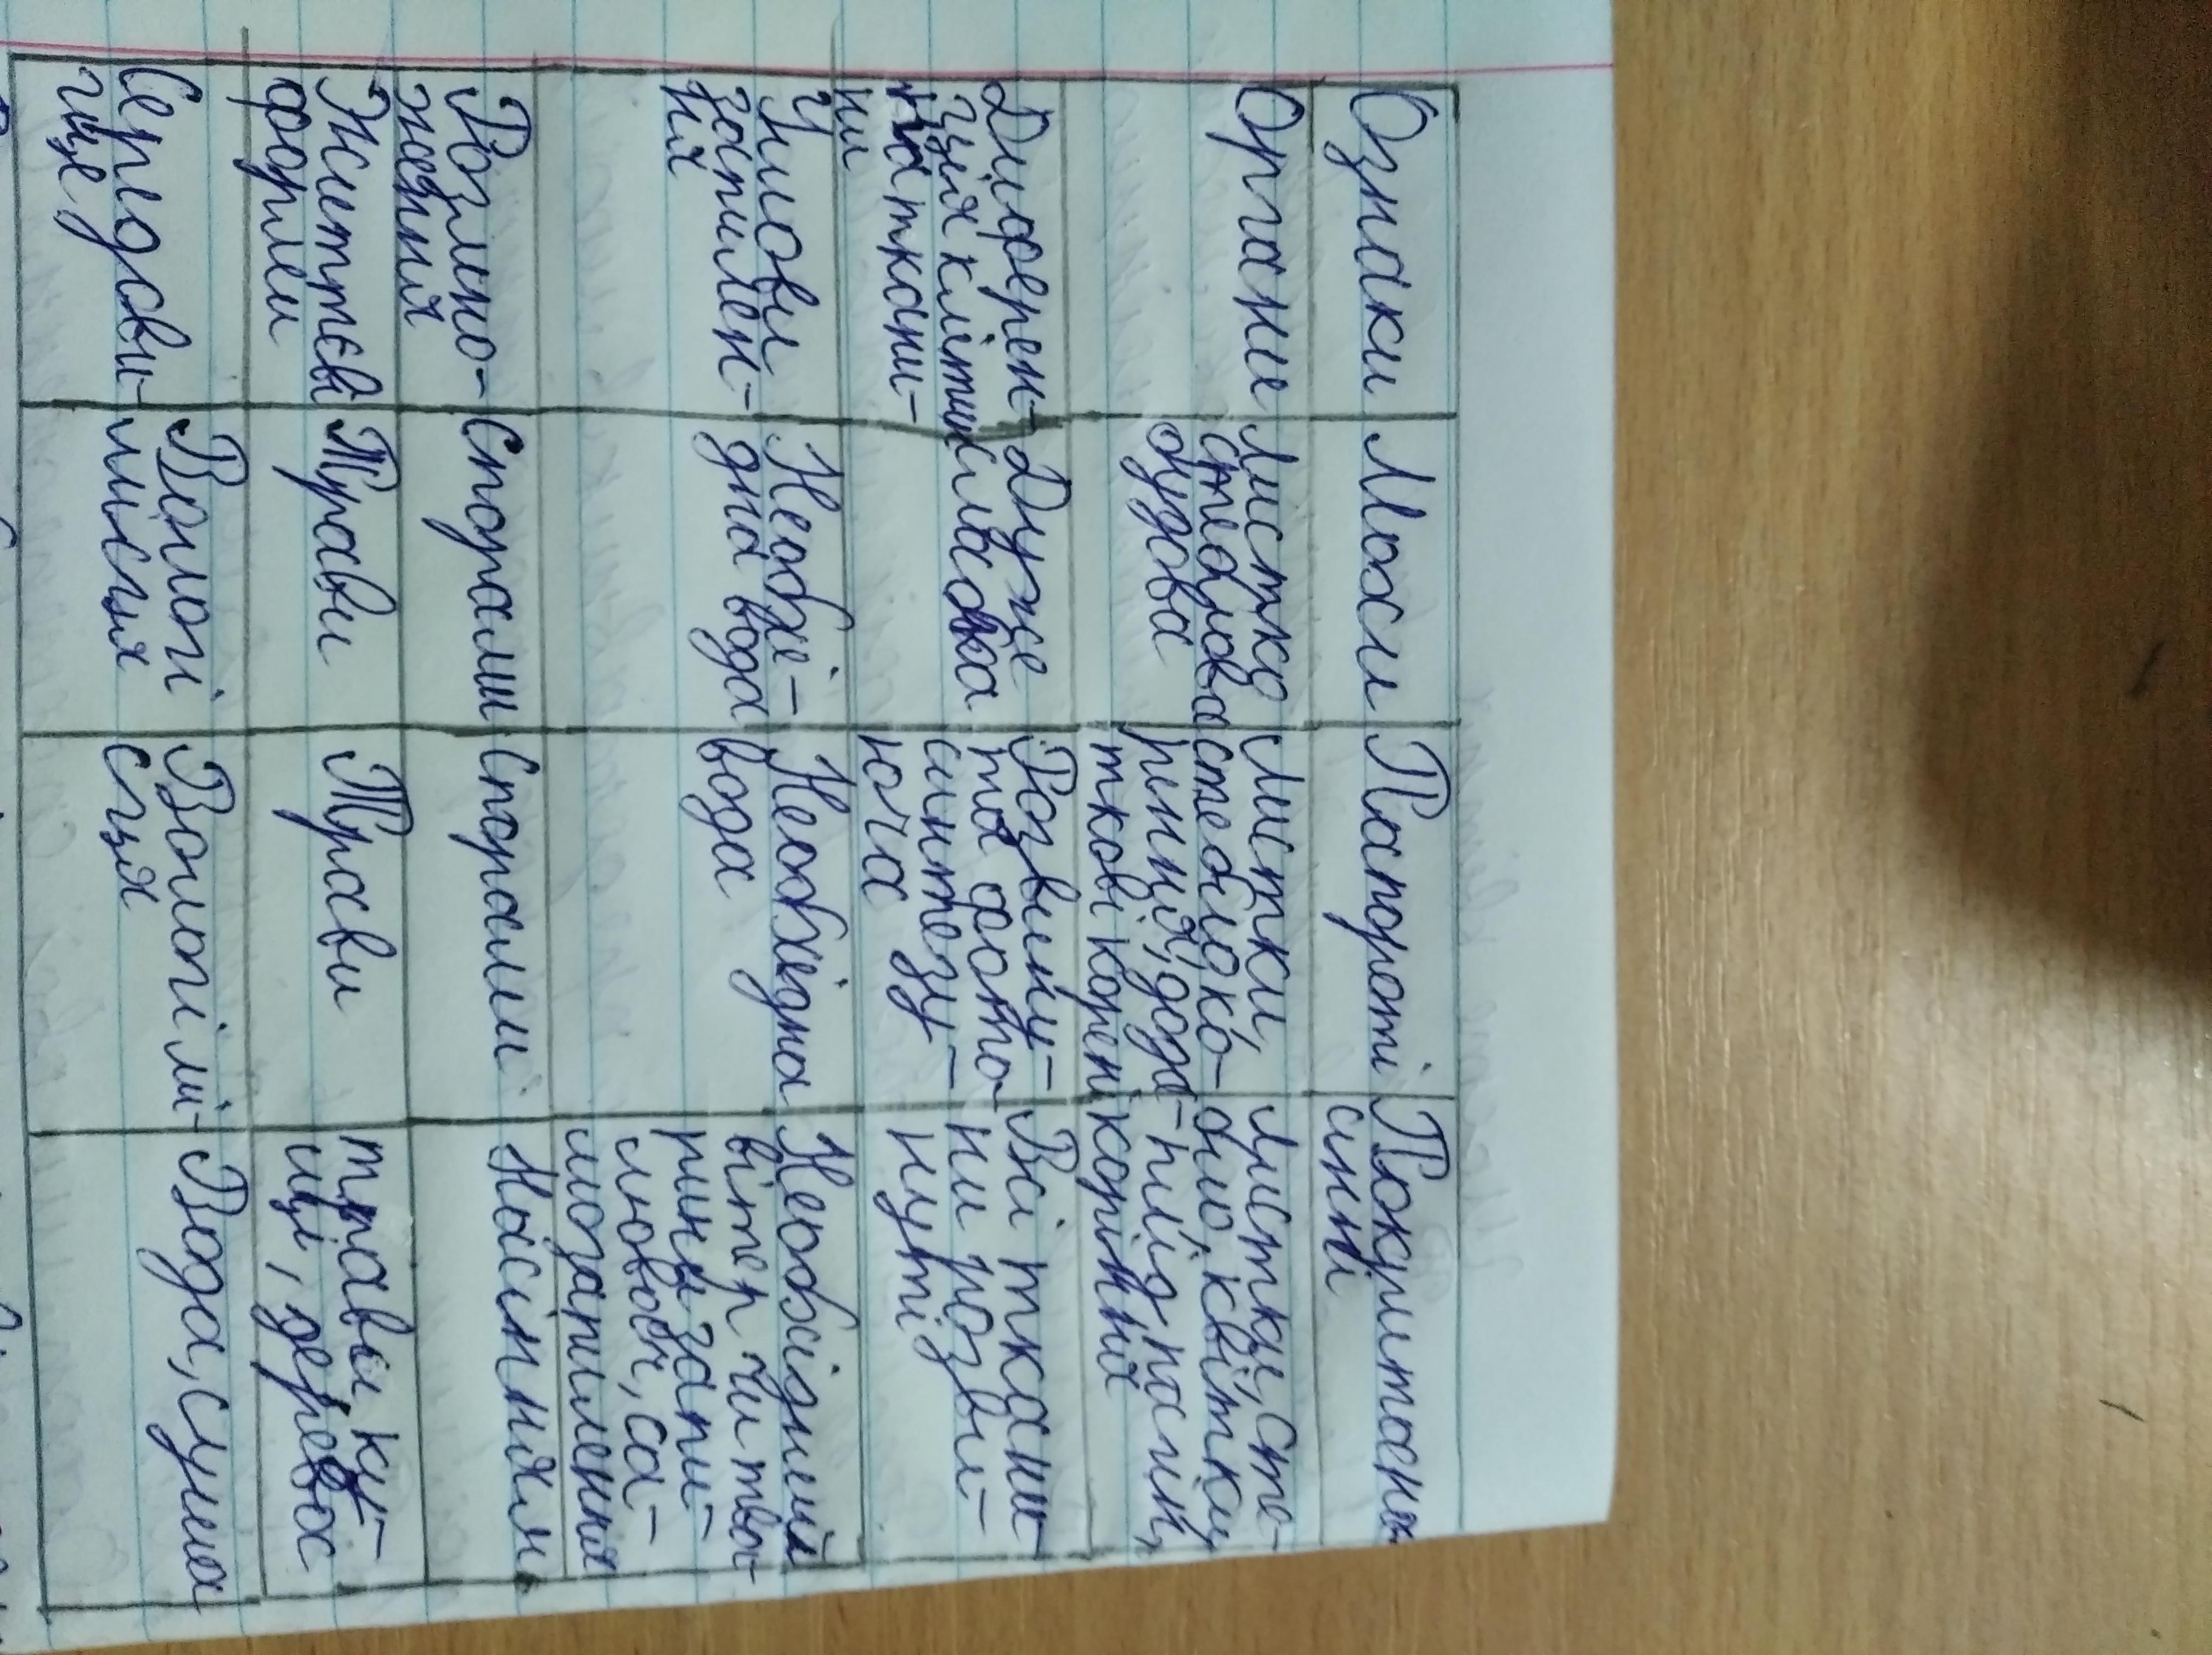 Ознаки
Мохи
Папороті
Покритона-
синні
Органи
Листко
стеблова
будова
Листки,
стебло, ко-
ренищя, дода-
ткові корені
Листки, сте-
бло, квітки,
плід, пагін,
коріння
Диферен-
ція клітин
на ткани-
ни
Дуже
слабка
Розвину-
та фото-
синтезу-
юча
Всі ткани-
ни розви-
нуті
Умови
запилен-
ня
Необхі-
дна вода
Необхідна
вода
Необхідний
вітер чи тва-
рини запи-
лювач, са-
мозапилення
Розмно-
ження
Спорами
Спорами
Насінням
Життєві
форми
Трави
Трави
трави, ку-
щі, дерева
Середови-
ще
Вологі
місця
Вологі мі-
сця
Вода, суша